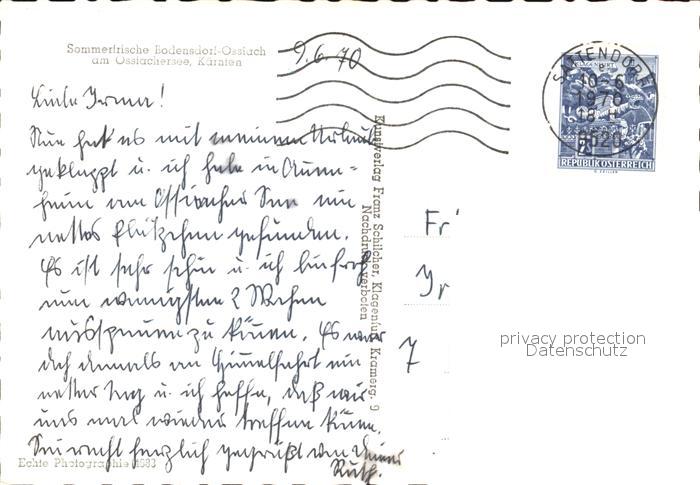 Sommerfrische Bodensdorf-Ossiach
am Ossiachersee, Kärnten
9.6.70
Liebe Irma!
Nun hat es mit meinem Urlaub
geklappt u. ich habe in
heim am Ossiacher See ein
nettes Plätzchen gefunden.
Es ist sehr schön u. ich bin froh
nun wenigstens 2 Wochen
ausspannen zu können. Es war
doch damals an Himmelfahrt ein
netter Tag u. ich hoffe, daß wir
uns mal wieder treffen können.
Sei recht herzlich gegrüßt von Deiner
Ruth.
Echte Photographie 1583
Kunstverlag Franz Schilcher, Klagenfurt, Kramerg. 9
Nachdruck verboten
SATTENDORF
10-6
1970
18 H
9520
REPUBLIK ÖSTERREICH
Fr
Ir
7
privacy protection
Datenschutz